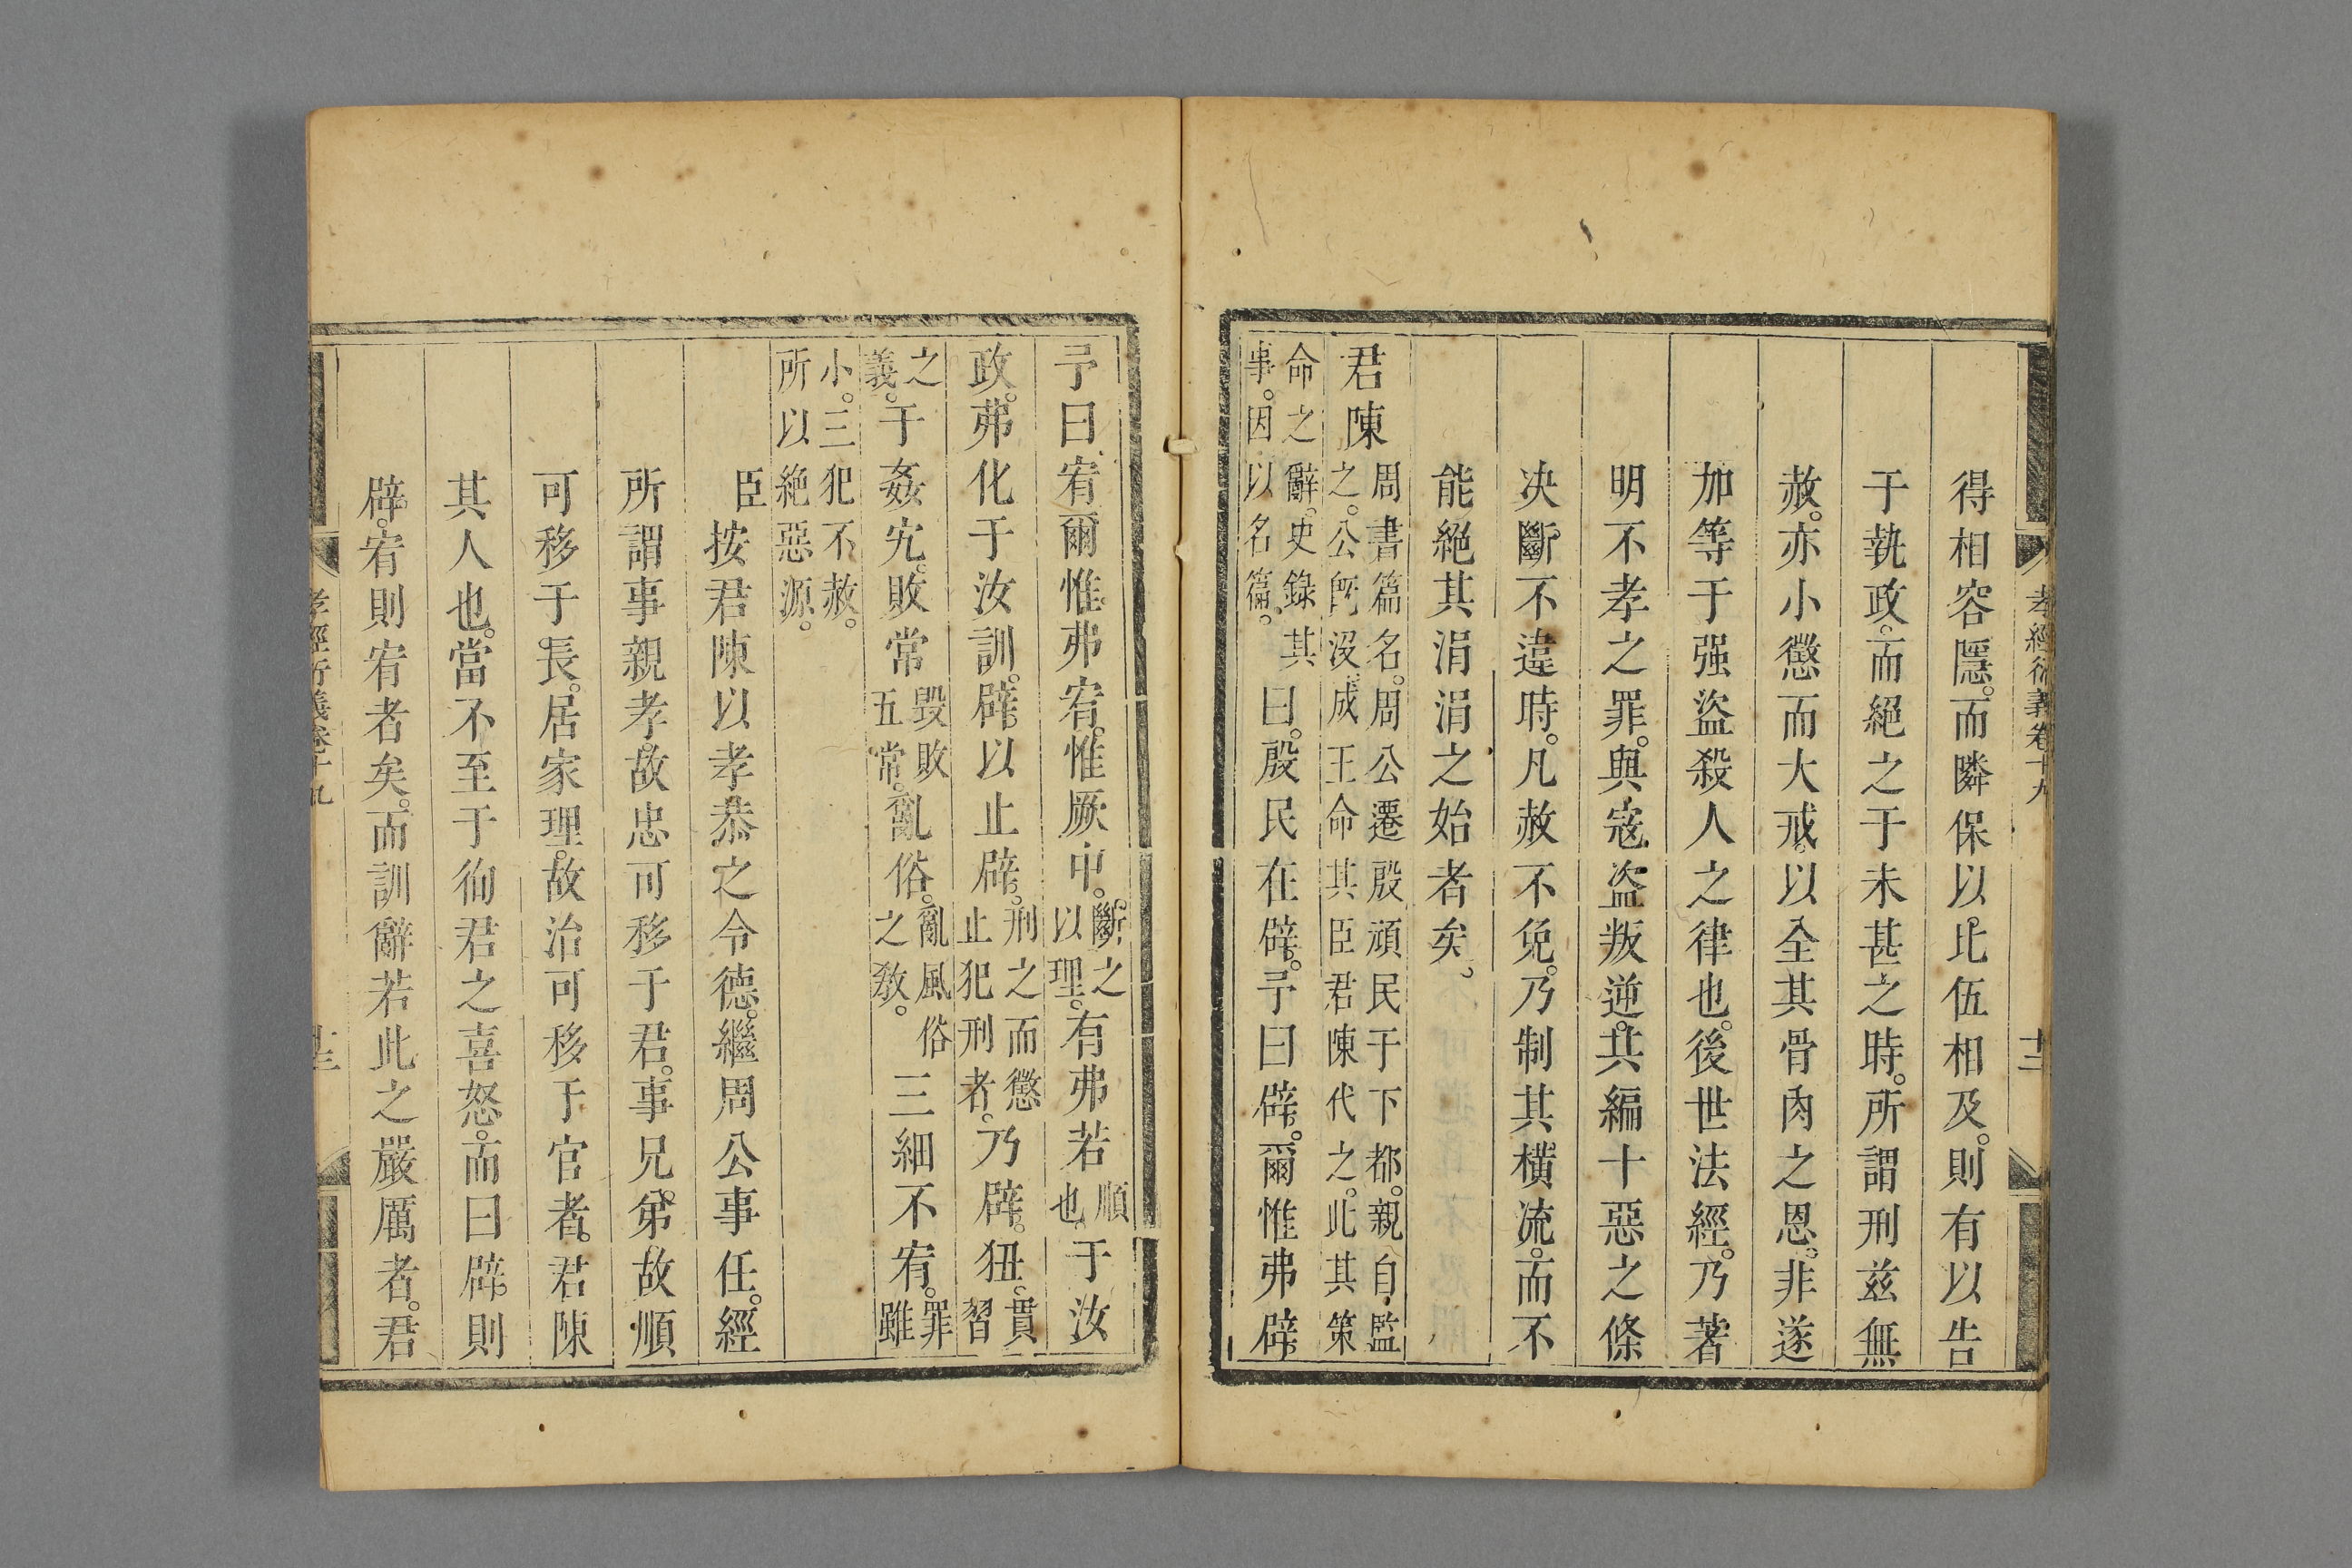 孝經衍義卷十九
十二
得相容隱。而隣保以比伍相及。則有以告
于執政。而絕之于未甚之時。所謂刑茲無
赦。亦小懲而大戒。以全其骨肉之恩。非遂
加等于强盜殺人之律也。後世法經。乃著
明不孝之罪。與寇盜叛逆。共編十惡之條
决斷不違時。凡赦不免。乃制其橫流。而不
能絕其涓涓之始者矣。
君陳周書篇名。周公遷殷頑民于下都。親自監之。公旣沒。成王命其臣君陳代之。此其策
命之辭。史錄其事。因以名篇。曰。殷民在辟。予曰辟。爾惟弗辟
予曰宥。爾惟弗宥。惟厥中。斷之以理。有弗若順也于汝
政。弗化于汝訓。辟以止辟。刑之而懲止犯刑者。乃辟。狃。貫習
之義。于姦宄。敗常毀敗五常。亂俗。亂風俗之敎。三細不宥。罪雖
小。三犯不赦。所以絕惡源。
臣按君陳以孝恭之令德。繼周公事任。經
所謂事親孝。故忠可移于君。事兄弟。故順
可移于長。居家理。故治可移于官者。君陳
其人也。當不至于徇君之喜怒。而曰辟。則
辟。宥則宥者矣。而訓辭若此之嚴厲者。君
孝經衍義卷十九
十三